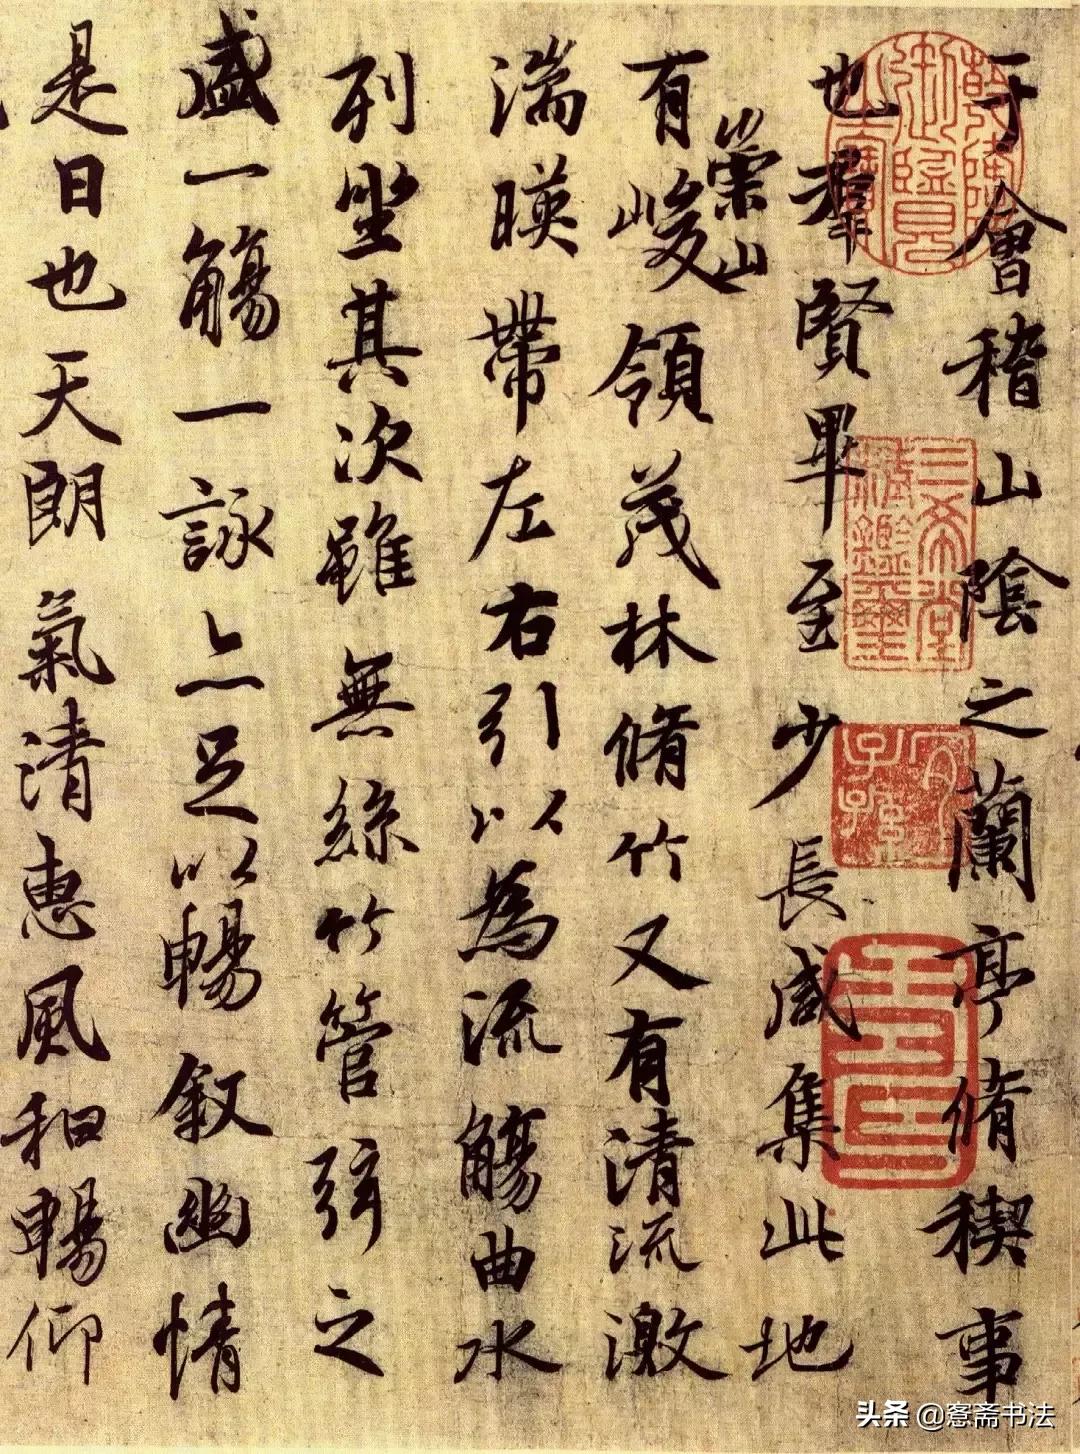 于會稽山陰之蘭亭脩稧事
也羣賢畢至少長咸集此地
崇山
有峻領茂林脩竹又有清流激
湍暎帶左右引以為流觴曲水
列坐其次雖無絲竹管弦之
盛一觴一詠亦足以暢叙幽情
是日也天朗氣清惠風和暢仰
三希堂
精鑑璽
宜
子孫
头条 @愙斋书法